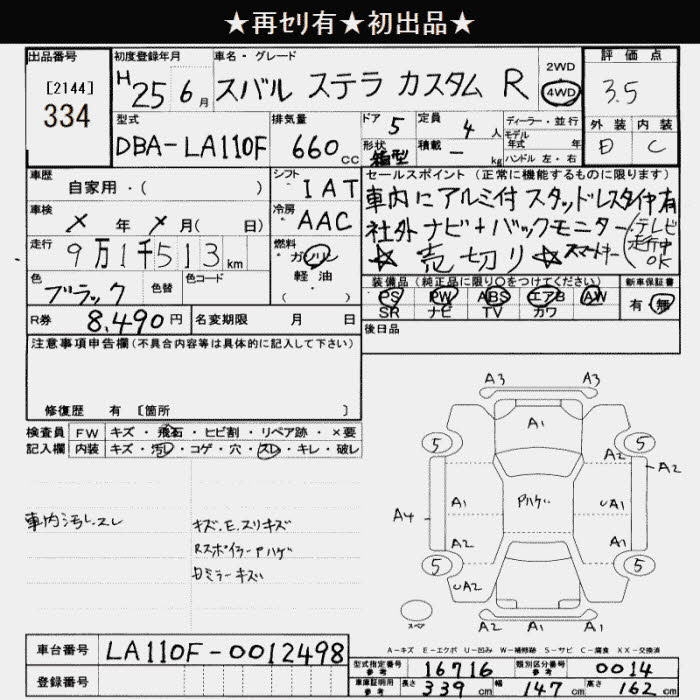 ★再セリ有★初出品★
出品番号
[2144]
334
初度登録年月
H25 6月
車名・グレード
スバル ステラ カスタム R
2WD
4WD
評価点
3.5
外装 内装
D C
型式
DBA-LA110F
排気量
660cc
ドア 5
形状 箱型
定員 4人
積載 ー kg
ディーラー・並行
モデル年式 年
ハンドル 左・右
車歴
自家用・( )
シフト
IAT
セールスポイント(正常に機能するものに限ります)
車内にアルミ付スタッドレスタイヤ有
社外ナビ+バックモニター(テレビ走行中OK
☆売切り☆スマートキー
車検
メ年メ月( 日)
冷房
AAC
走行
9万1千513km
燃料
ガソリン
軽・油
( )
色
ブラック
色替
色コード
装備品(純正品に限り○をつけてください)
PS PW ABS エアB AW
SR ナビ TV カワ
新車保証書
有・無
R券 8,490円
名変期限 月 日
後日品
注意事項申告欄(不具合内容等は具体的に記入して下さい)
修復歴 有 [箇所 ]
検査員 FW キズ・飛石・ヒビ割・リペア跡・×要
記入欄 内装 キズ・汚レ・コゲ・穴・スレ・キレ・破レ
車内汚レ.スレ
キズ.E.スリキズ
RスポイラーPハゲ
日ミラーキズ
A3 A3
A1
5 5
A2
A2
A1 Pハゲ UA1
A4
A2 A1
5 5
UA2 A2
A1 A2
スペア
A-キズ E-エクボ U-凹み W-補修跡 S-サビ C-腐食 XX-交換済
車台番号 LA110F-0012498
登録番号
型式指定番号 参考 16716 類別区分番号 参考 0014
車庫証明用 参考 長さ 339cm 幅 147cm 高さ 162cm